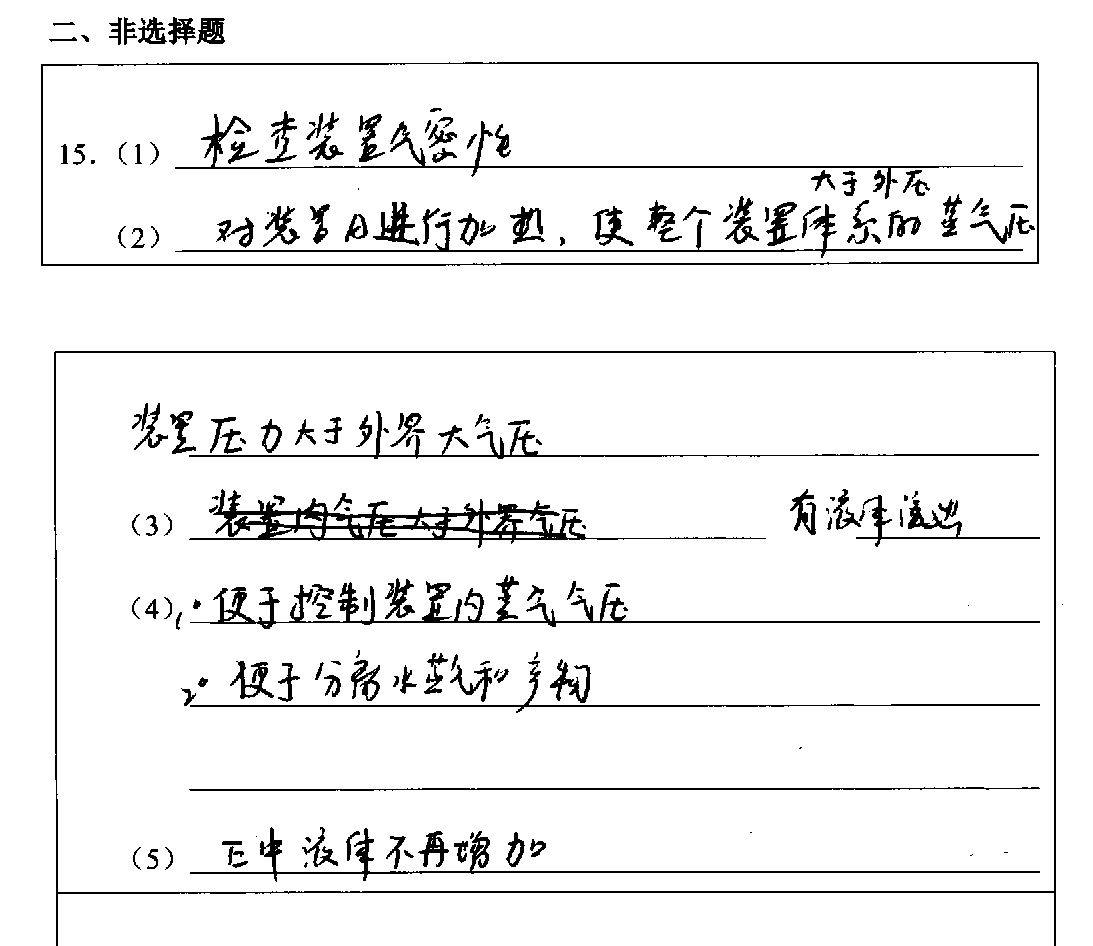 二、非选择题
15.（1）检查装置气密性
大于外压
（2）对装置A进行加热，使整个装置体系的蒸气压
装置压力大于外界大气压
（3）装置内气压大于外界气压 有液体溢出
（4）1. 便于控制装置内蒸气气压
2. 便于分离水蒸气和产物
（5）E中液体不再增加